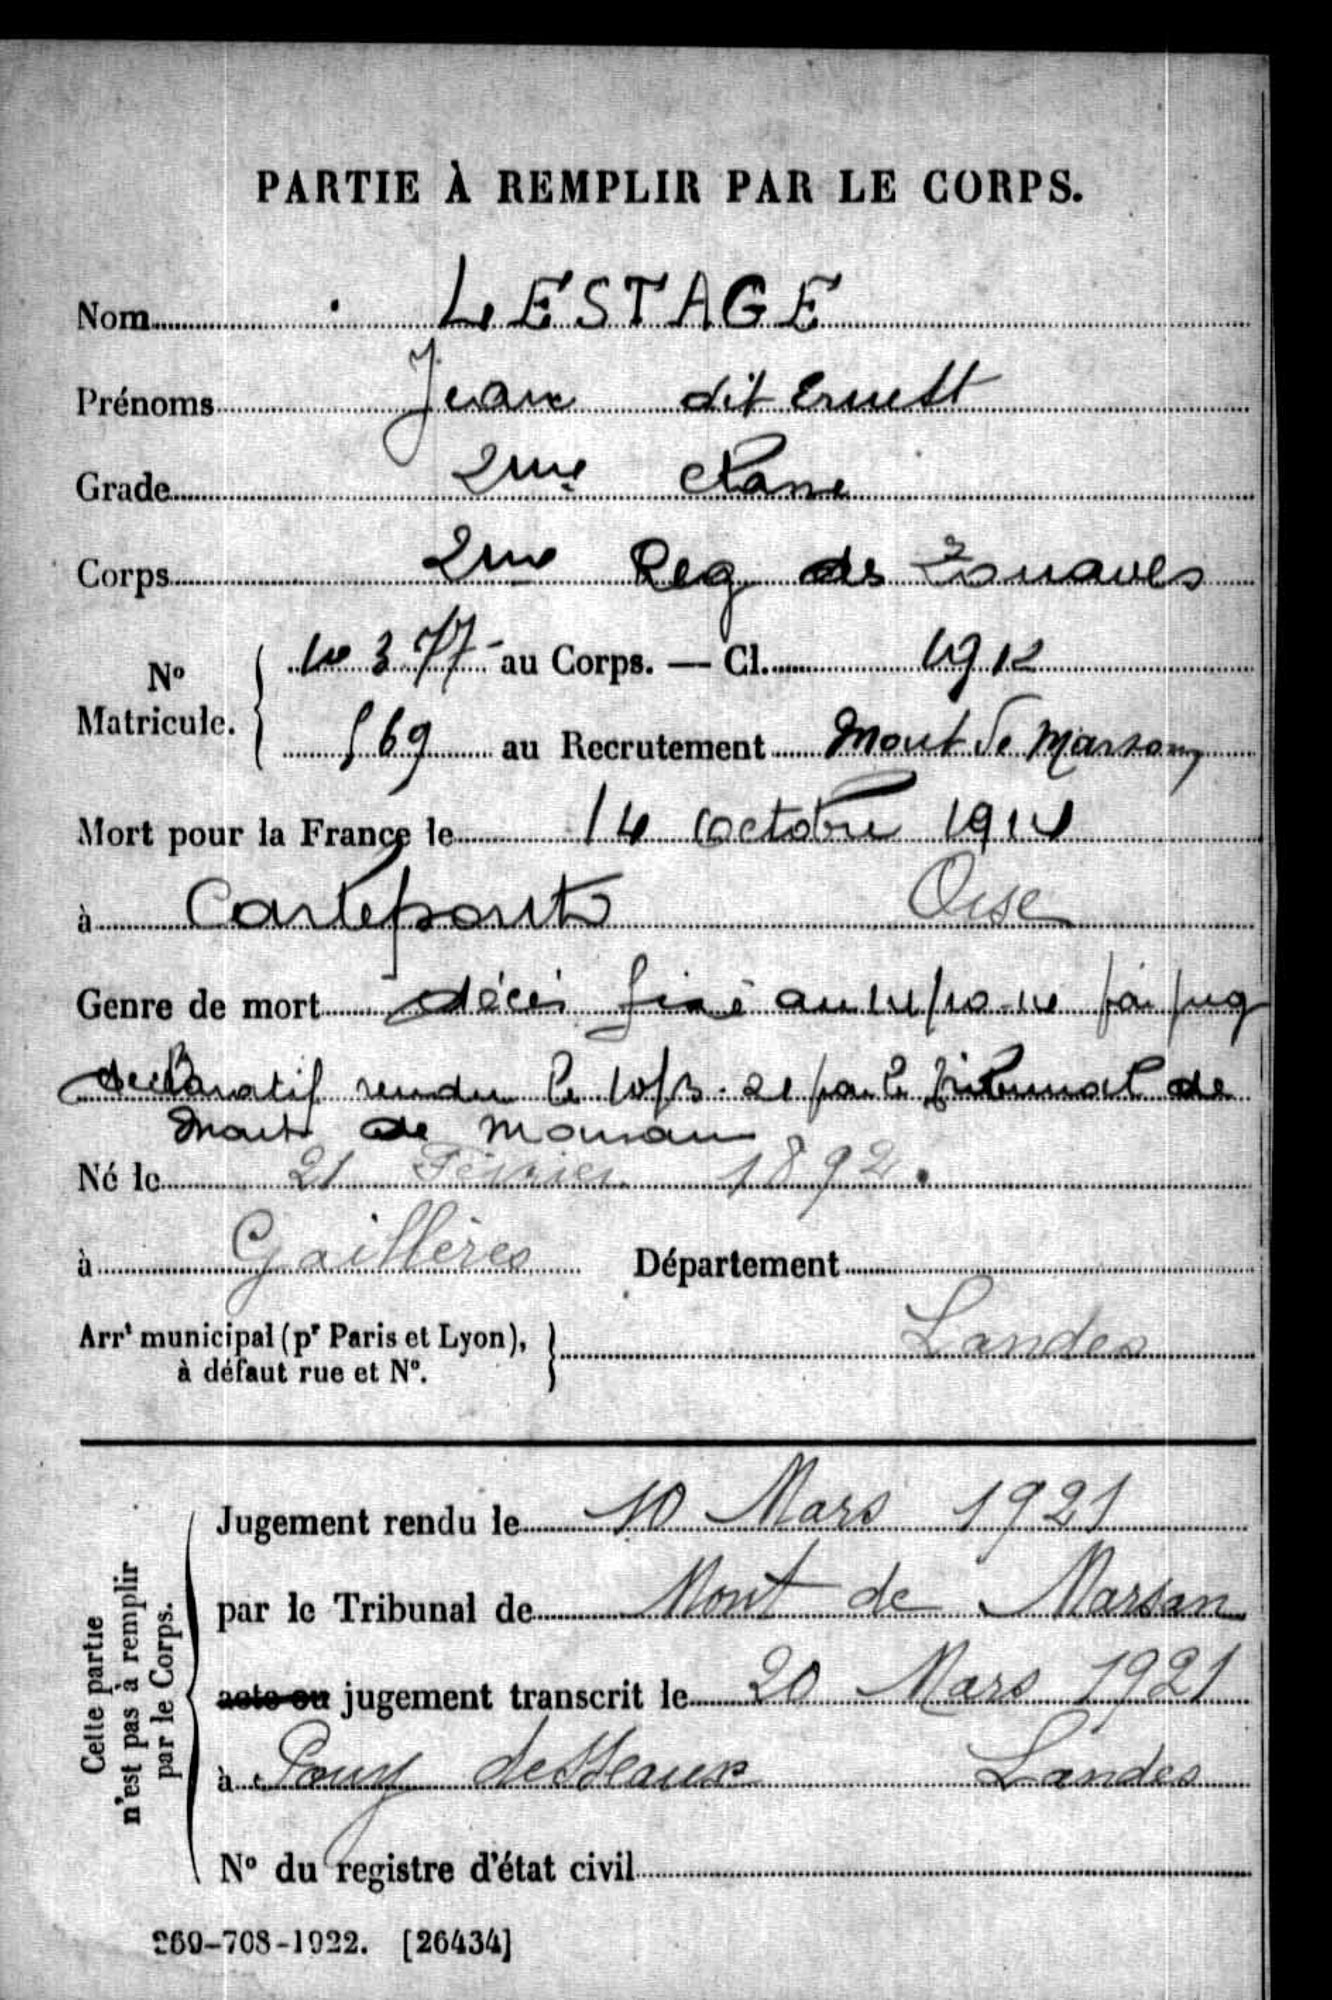 PARTIE À REMPLIR PAR LE CORPS.
Nom LESTAGE
Prénoms Jean dit Ernest
Grade 2me Classe
Corps 2me Reg de Zouaves
No Matricule. 10377 au Corps. — Cl. 1912
569 au Recrutement Mont de Marsan
Mort pour la France le 14 Octobre 1914
à Carlepont Oise
Genre de mort décès fixé au 14/10-14 par jug
declaratif rendu le 10/3-21 par le tribunal de
Mont de Marsan
Né le 21 Février 1892.
à Gaillères Département
Arrt municipal (pr Paris et Lyon), à défaut rue et No. Landes
Cette partie n'est pas à remplir par le Corps.
Jugement rendu le 10 Mars 1921
par le Tribunal de Mont de Marsan
acte ou jugement transcrit le 20 Mars 1921
à Pouy desseaux Landes
No du registre d'état civil
269-708-1922. [26434]